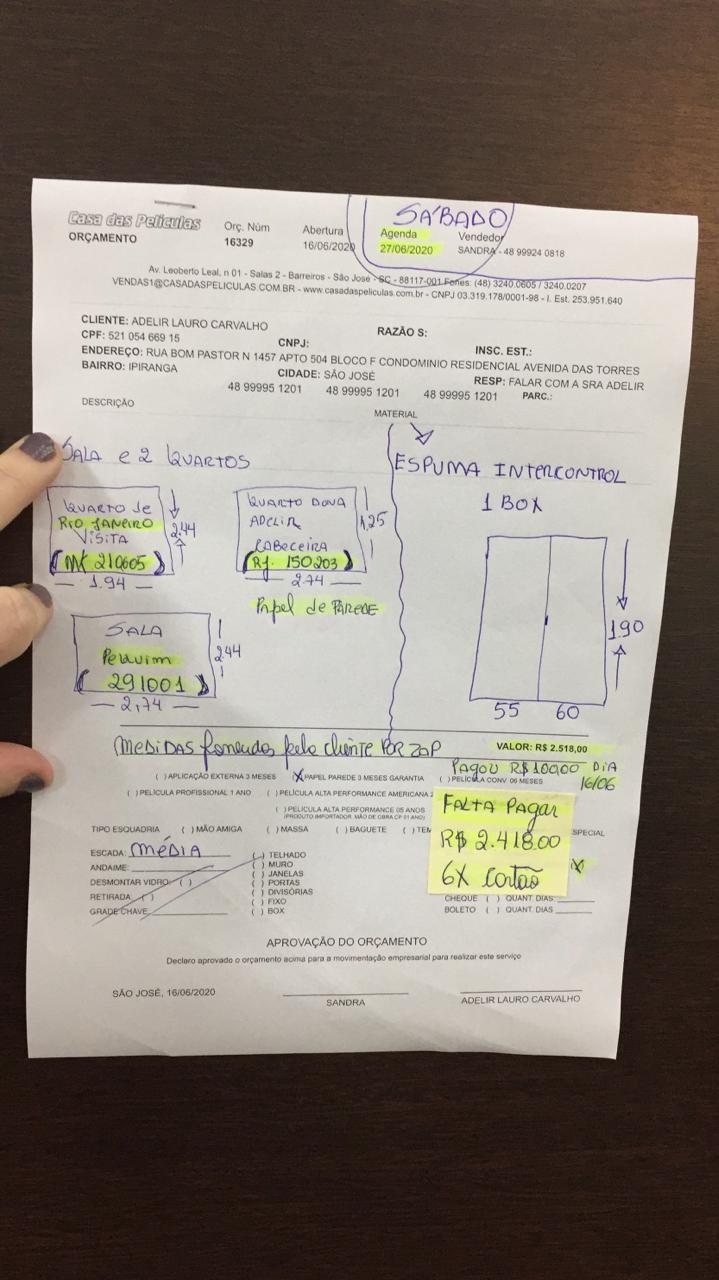 Casa das Películas
ORÇAMENTO
Orç. Núm
16329
Abertura
16/06/2020
SÁBADO
Agenda
27/06/2020
Vendedor
SANDRA - 48 99924 0818
Av. Leoberto Leal, n 01 - Salas 2 - Barreiros - São José - SC - 88117-001 Fones: (48) 3240.0605 / 3240.0207
VENDAS1@CASADASPELICULAS.COM.BR - www.casadaspeliculas.com.br - CNPJ 03.319.178/0001-98 - I. Est. 253.951.640
CLIENTE: ADELIR LAURO CARVALHO
RAZÃO S:
CPF: 521 054 669 15
CNPJ:
INSC. EST.:
ENDEREÇO: RUA BOM PASTOR N 1457 APTO 504 BLOCO F CONDOMINIO RESIDENCIAL AVENIDA DAS TORRES
BAIRRO: IPIRANGA
CIDADE: SÃO JOSÉ
RESP: FALAR COM A SRA ADELIR
48 99995 1201 48 99995 1201 48 99995 1201 PARC.:
DESCRIÇÃO
MATERIAL
SALA e 2 QUARTOS
ESPUMA INTERCONTROL
1 BOX
QUARTO de
RIO JANEIRO
VISITA
(MK 210605)
2.44
1.94
QUARTO DONA
ADELIR
CABECEIRA
(RJ. 150203)
1,25
2.74
Papel de PAREDE
SALA
Pequim
(291001)
244
2,74
190
55 60
MEDIDAS fornecidas pelo cliente POR ZAP
VALOR: R$ 2.518,00
Pagou R$ 100,00 DIA
16/06
( ) APLICAÇÃO EXTERNA 3 MESES (X) PAPEL PAREDE 3 MESES GARANTIA ( ) PELÍCULA CONV 06 MESES
( ) PELÍCULA PROFISSIONAL 1 ANO ( ) PELÍCULA ALTA PERFORMANCE AMERICANA 2
( ) PELÍCULA ALTA PERFORMANCE 05 ANOS
(PRODUTO IMPORTADOR, MÃO DE OBRA CP 01 ANO)
FALTA PAGAR
R$ 2.418.00
6X cartão
TIPO ESQUADRIA ( ) MÃO AMIGA ( ) MASSA ( ) BAGUETE ( ) TEM
SPECIAL
ESCADA: MÉDIA
ANDAIME:
DESMONTAR VIDRO: ( )
RETIRADA: ( )
GRADE CHAVE
( ) TELHADO
( ) MURO
( ) JANELAS
( ) PORTAS
( ) DIVISÓRIAS
( ) FIXO
( ) BOX
X
CHEQUE ( ) QUANT. DIAS
BOLETO ( ) QUANT. DIAS
APROVAÇÃO DO ORÇAMENTO
Declaro aprovado o orçamento acima para a movimentação empresarial para realizar este serviço
SÃO JOSÉ, 16/06/2020
SANDRA
ADELIR LAURO CARVALHO